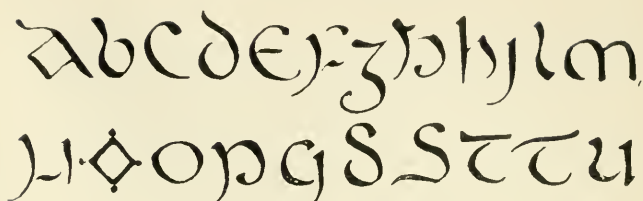 A b C d E F Ᵹ h h j l m
N O O p q S S T T U